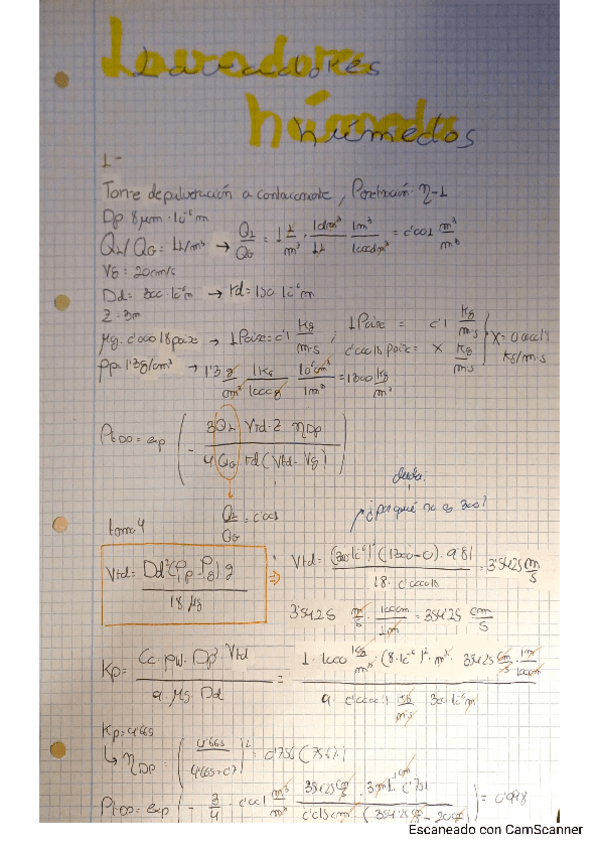 Lavadores
húmedos
1-
Torre de pulveración a contracorriente, Penetración: η-1
Dp: 8 μm · 10⁻⁶ m
QL/QG = 1L/m³ → QL/QG = 1 L/m³ · 1dm³/1L · 1m³/1000dm³ = 0'001 m³/m³
Vg = 20cm/s
Dd = 300·10⁻⁶m → rd = 150·10⁻⁶m
Z = 3m
μg: 0'00018 poise → 1Poise = 0'1 kg/m·s ; 1Poise = 0'1 kg/m·s
0'00018 poise = X kg/m·s } X = 0'000018 kg/m·s
ρp = 1'3g/cm³ → 1'3 g/cm³ · 1kg/1000g · 10⁶cm³/1m³ = 1300 kg/m³
PtDD = exp ( - 3QL Vtd·Z ηDp / 4QG rd (Vtd - Vg) )
QL/QG = 0'001
duda
¿porqué no es 300?
tema 4
Vtd = Dd²(ρp - ρg) g / 18 μg ⇒ Vtd = (300·10⁻⁶)² (1300-0) · 9'81 / 18 · 0'000018 = 3'5425 m/s
3'5425 m/s · 100cm/1m = 354'25 cm/s
Kp = Cc · ρw · Dp² Vtd / 9 · μg Dd = 1 · 1000 kg/m³ · (8·10⁻⁶)² · m² · 354'25 cm/s · 1m/100cm
Kp = 4'665
↳ ηDp = ( 4'665 / 4'665+0'7 )² = 0'756 (75'6%)